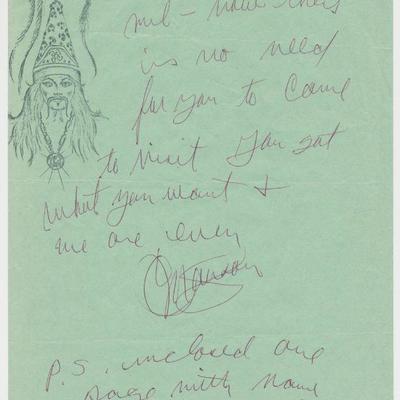 is no need
for you to come
to visit you got
what you want &
we are even
Manson
P.S. inclosed one
page with name